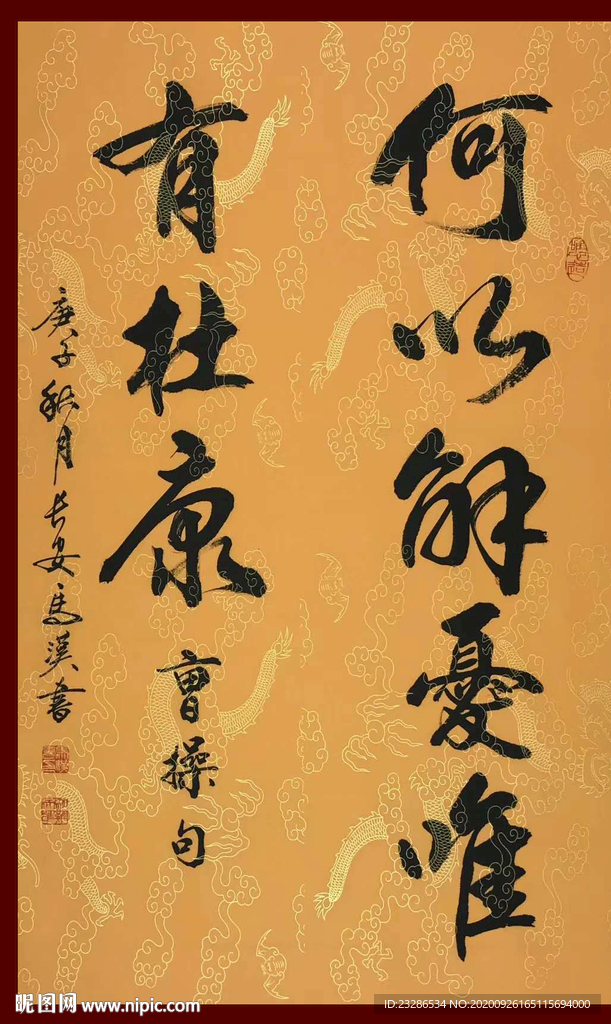 何以解憂唯
有杜康
曹操句
庚子秋月長安馬漢書
昵图网 www.nipic.com
ID:23286534 NO:20200926165115694000